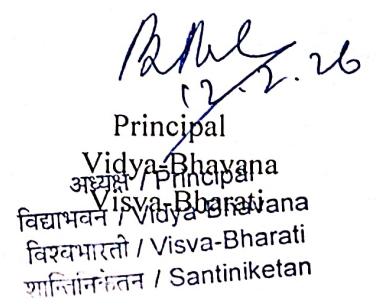 12.2.26
Principal
Vidya-Bhavana
Visva-Bharati
अध्यक्ष / Principal
विद्याभवन / Vidya-Bhavana
विश्वभारती / Visva-Bharati
शान्तिनिकेतन / Santiniketan